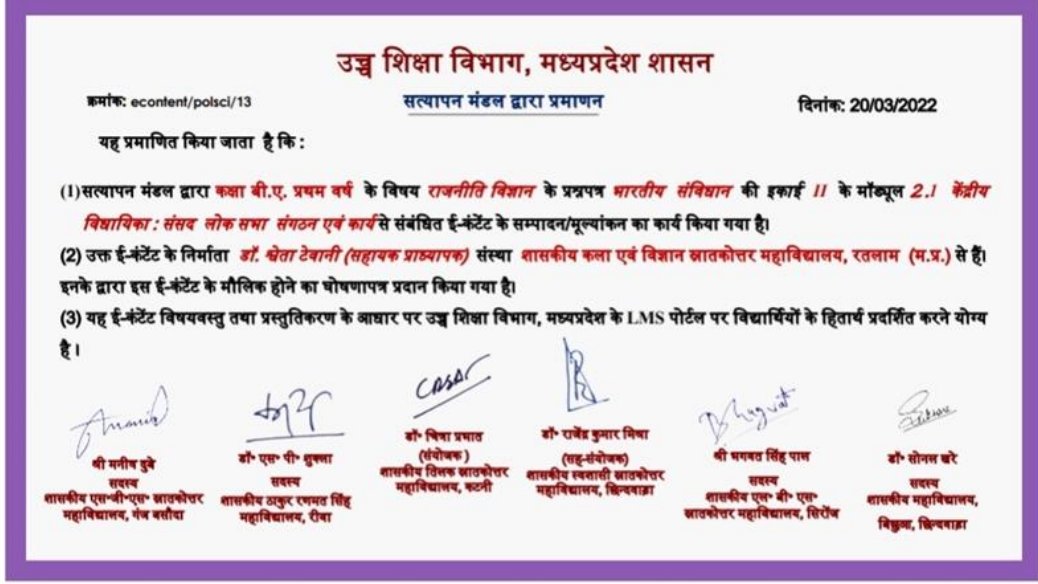 उच्च शिक्षा विभाग, मध्यप्रदेश शासन
क्रमांक: econtent/polsci/13
सत्यापन मंडल द्वारा प्रमाणन
दिनांक: 20/03/2022
यह प्रमाणित किया जाता है कि :
(1)सत्यापन मंडल द्वारा कक्षा बी.ए. प्रथम वर्ष के विषय राजनीति विज्ञान के प्रश्नपत्र भारतीय संविधान की इकाई II के मॉड्यूल 2.1 केंद्रीय
विधायिका : संसद लोक सभा संगठन एवं कार्य से संबंधित ई-कंटेंट के सम्पादन/मूल्यांकन का कार्य किया गया है।
(2) उक्त ई-कंटेंट के निर्माता डॉ. श्वेता टेवानी (सहायक प्राध्यापक) संस्था शासकीय कला एवं विज्ञान स्नातकोत्तर महाविद्यालय, रतलाम (म.प्र.) से हैं।
इनके द्वारा इस ई-कंटेंट के मौलिक होने का घोषणापत्र प्रदान किया गया है।
(3) यह ई-कंटेंट विषयवस्तु तथा प्रस्तुतिकरण के आधार पर उच्च शिक्षा विभाग, मध्यप्रदेश के LMS पोर्टल पर विद्यार्थियों के हितार्थ प्रदर्शित करने योग्य
है ।
श्री मनीष दुबे
सदस्य
शासकीय एस॰जी॰एस॰ स्नातकोत्तर
महाविद्यालय, गंज बसौदा
डॉ॰ एस॰ पी॰ शुक्ला
सदस्य
शासकीय ठाकुर रणमत सिंह
महाविद्यालय, रीवा
डॉ॰ चित्रा प्रभात
(संयोजक )
शासकीय तिलक स्नातकोत्तर
महाविद्यालय, कटनी
डॉ॰ राजेंद्र कुमार मिश्रा
(सह-संयोजक)
शासकीय स्वशासी स्नातकोत्तर
महाविद्यालय, छिन्दवाड़ा
Bhagvat
श्री भगवत सिंह पाल
सदस्य
शासकीय एल॰ बी॰ एस॰
स्नातकोत्तर महाविद्यालय, सिरोंज
डॉ॰ सोनल खरे
सदस्य
शासकीय महाविद्यालय,
बिछुआ, छिन्दवाड़ा